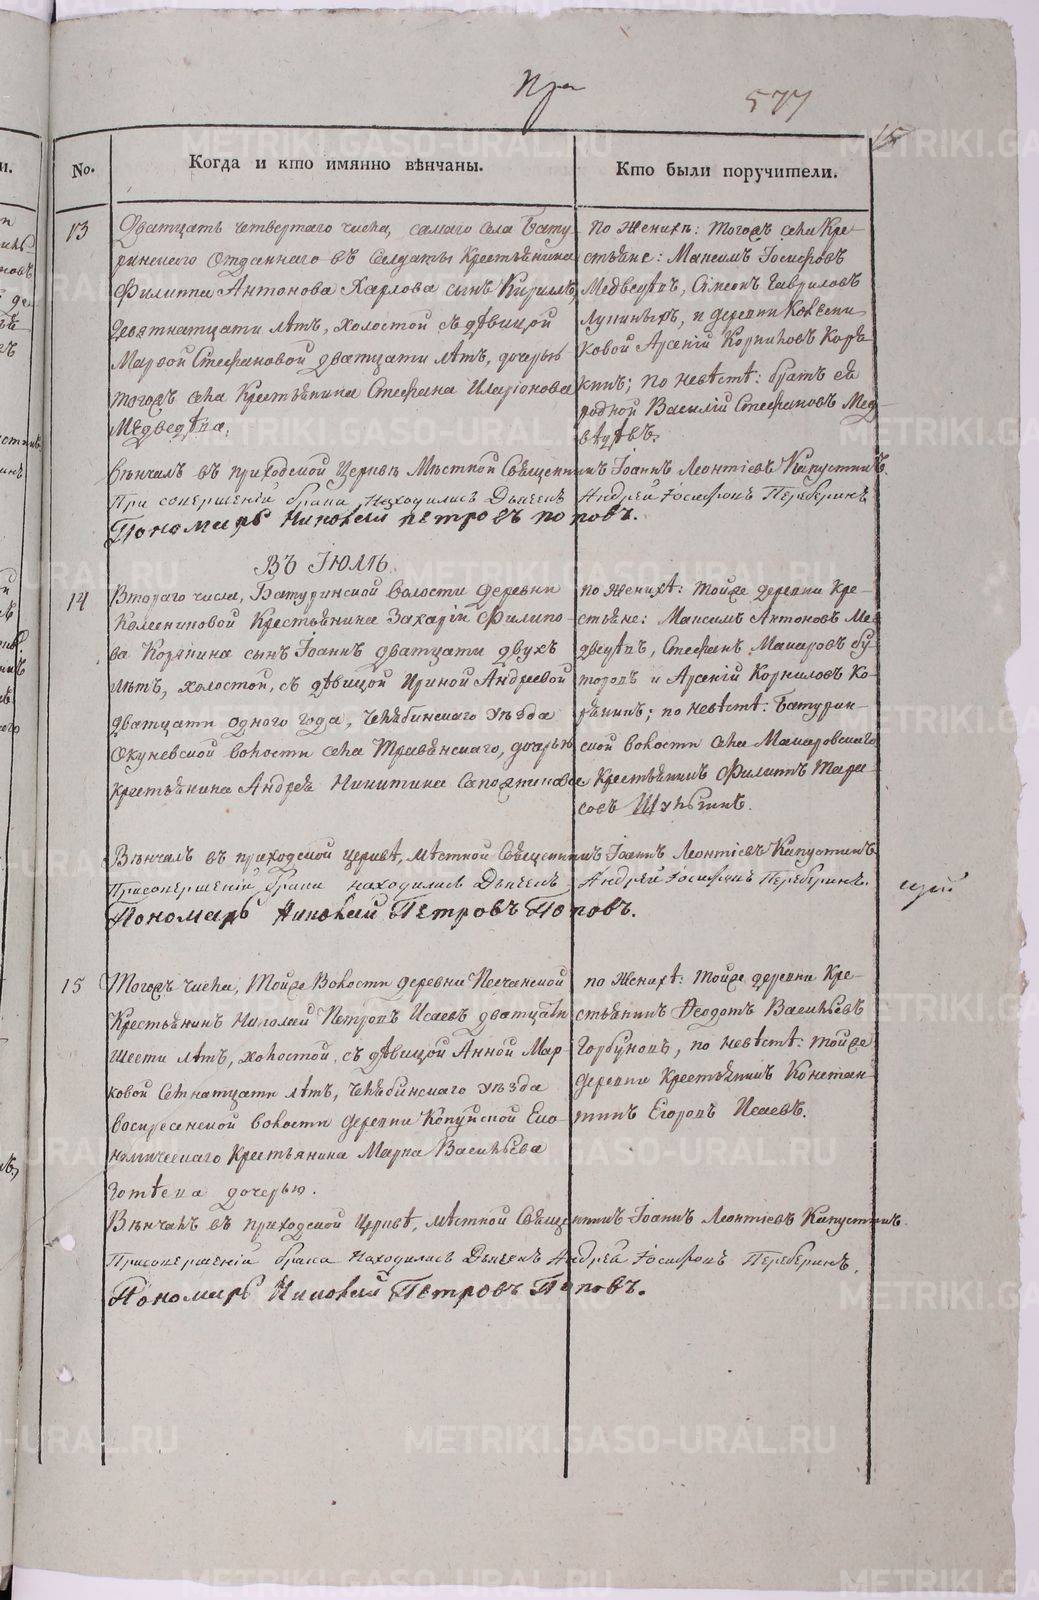 577
15
No.
Когда и кто имянно вѣнчаны.
Кто были поручители.
13
Дватцать четвертаго числа, самаго села Бату-
ринскаго отданнаго въ Солдаты Крестьянина
Филиппа Антонова Харлова сынъ Кириллъ,
девятнатцати лѣтъ, холостой съ дѣвицой
Марѳой Стефановой дватцати лѣтъ, дочерью
тогожъ села Крестьянина Стефана Иларіонова
Медведѣва.
по женихѣ: тогожъ села Кре-
стьяне: Максимъ Іосифовъ
Медведѣвъ, Симеонъ Гавриловъ
Лупиныхъ, и деревни Колсени-
ковой Арсеній Корниловъ Коря-
кинъ; по невѣстѣ: братъ еѣ
родной Василій Стефановъ Мед-
вѣдѣвъ.
Вѣнчалъ въ приходской Церквѣ Мѣстной Священникъ Іоаннъ Леонтіевъ Капустинъ.
При совершеній брака находились Дьячекъ Андрей Іосифовъ Переберинъ
Пономарь Николай Петровъ Поповъ.
Въ Іюлѣ.
14
Втораго числа, Батуринской волости деревни
Колсениковой Крестьянина Захарія Филипо-
ва Корякина сынъ Іоаннъ дватцати двухъ
лѣтъ, холостой, съ дѣвицой Ириной Андреевой
дватцати одного года, Челябинскаго уѣзда
Окуневской волости села Травянскаго, дочерью
крестьянина Андрея Никитина Сапожникова
по женихѣ: тойже деревни Кре-
стьяне: Максимъ Антоновъ Ме-
дведѣвъ, Стефанъ Макаровъ Бу-
торовъ и Арсеній Корниловъ Ко-
рякинъ; по невѣстѣ: Батурин-
ской волости села Макаровскаго
Крестьянинъ Филипъ Тара-
совъ
Вѣнчалъ въ приходской церквѣ, мѣстной Священникъ Іоаннъ Леонтіевъ Капустинъ
Присовершеній брака находились Дьячекъ Андрей Іосифовъ Переберинъ.
Пономарь Николай Петровъ Поповъ.
15
Тогожъ числа, Тойже Волости деревни Песчанской
Крестьянинъ Николай Петровъ Исаевъ дватцати
шести лѣтъ, холостой, съ дѣвицой Анной Мар-
ковой Семнатцати лѣтъ, Челябинскаго уѣзда
воскресенской волости деревни Копуйской Еко-
номическаго Крестьянина Марка Васильева
Зотѣева дочерью.
по женихѣ: тойже деревни Кре-
стьянинъ Ѳеодотъ Васильевъ
Горбуновъ, по невѣстѣ: тойже
деревни Крестьянинъ Констан-
тинъ Егоровъ Исаевъ.
Вѣнчалъ въ приходской Церквѣ, мѣстной Священникъ Іоаннъ Леонтіевъ Капустинъ
Присовершеній брака находились Дьячекъ Андрей Іосифовъ Переберинъ.
Пономарь Николай Петровъ Поповъ.
METRIKI.GASO-URAL.RU